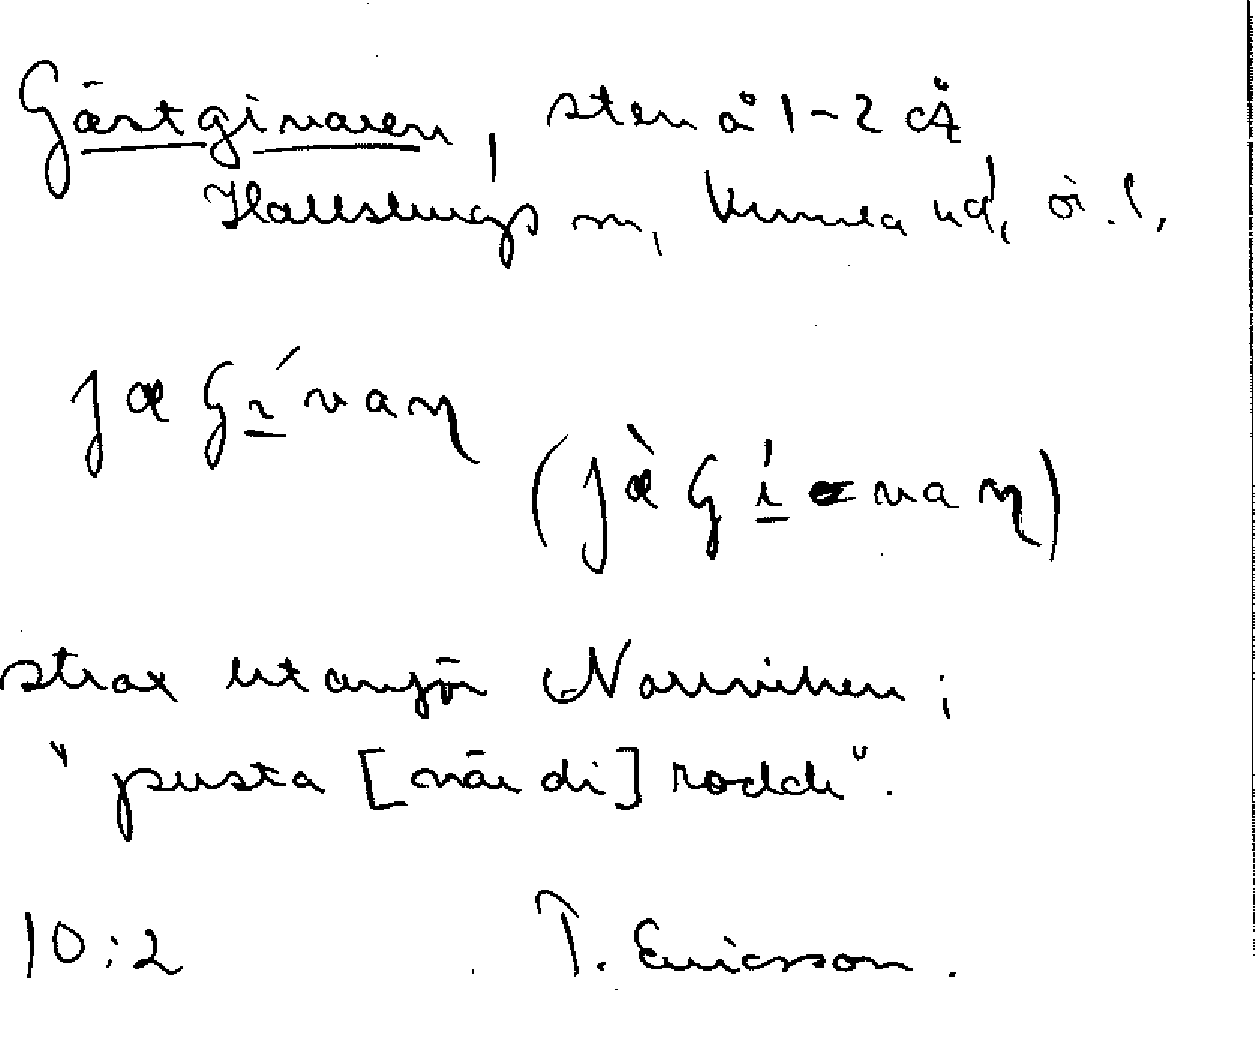 Gästgivaren, sten å 1-2 Ä
Hallsbergs sn, Kumla hd, ö. l.
jæGívaɳ
(jæ̀Gívaɳ)
strax utanför Norrviken;
"pusta [när di] rodde".
10:2 T. Ericsson.